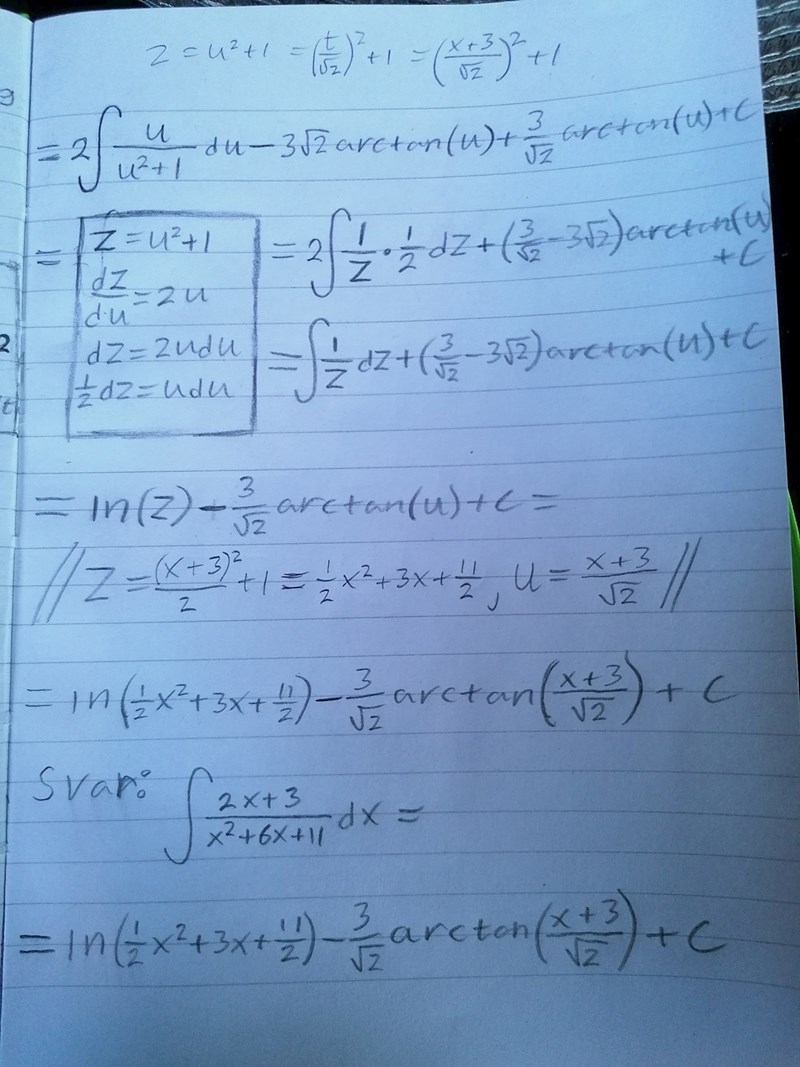 z = u²+1 = (t/√2)² + 1 = (x+3/√2)² + 1
= 2∫ u/u²+1 du - 3√2 arctan(u) + 3/√2 arctan(u) + C
= z = u²+1 = 2∫ 1/z · 1/2 dz + (3/√2 - 3√2) arctan(u)
+ C
dz/du = 2u
dz = 2udu = ∫ 1/z dz + (3/√2 - 3√2) arctan(u) + C
1/2 dz = udu
= ln(z) - 3/√2 arctan(u) + C =
// z = (x+3)²/2 + 1 = 1/2 x² + 3x + 11/2, u = x+3/√2 //
= ln(1/2 x² + 3x + 11/2) - 3/√2 arctan(x+3/√2) + C
Svar: ∫ 2x+3/x²+6x+11 dx =
= ln(1/2 x² + 3x + 11/2) - 3/√2 arctan(x+3/√2) + C